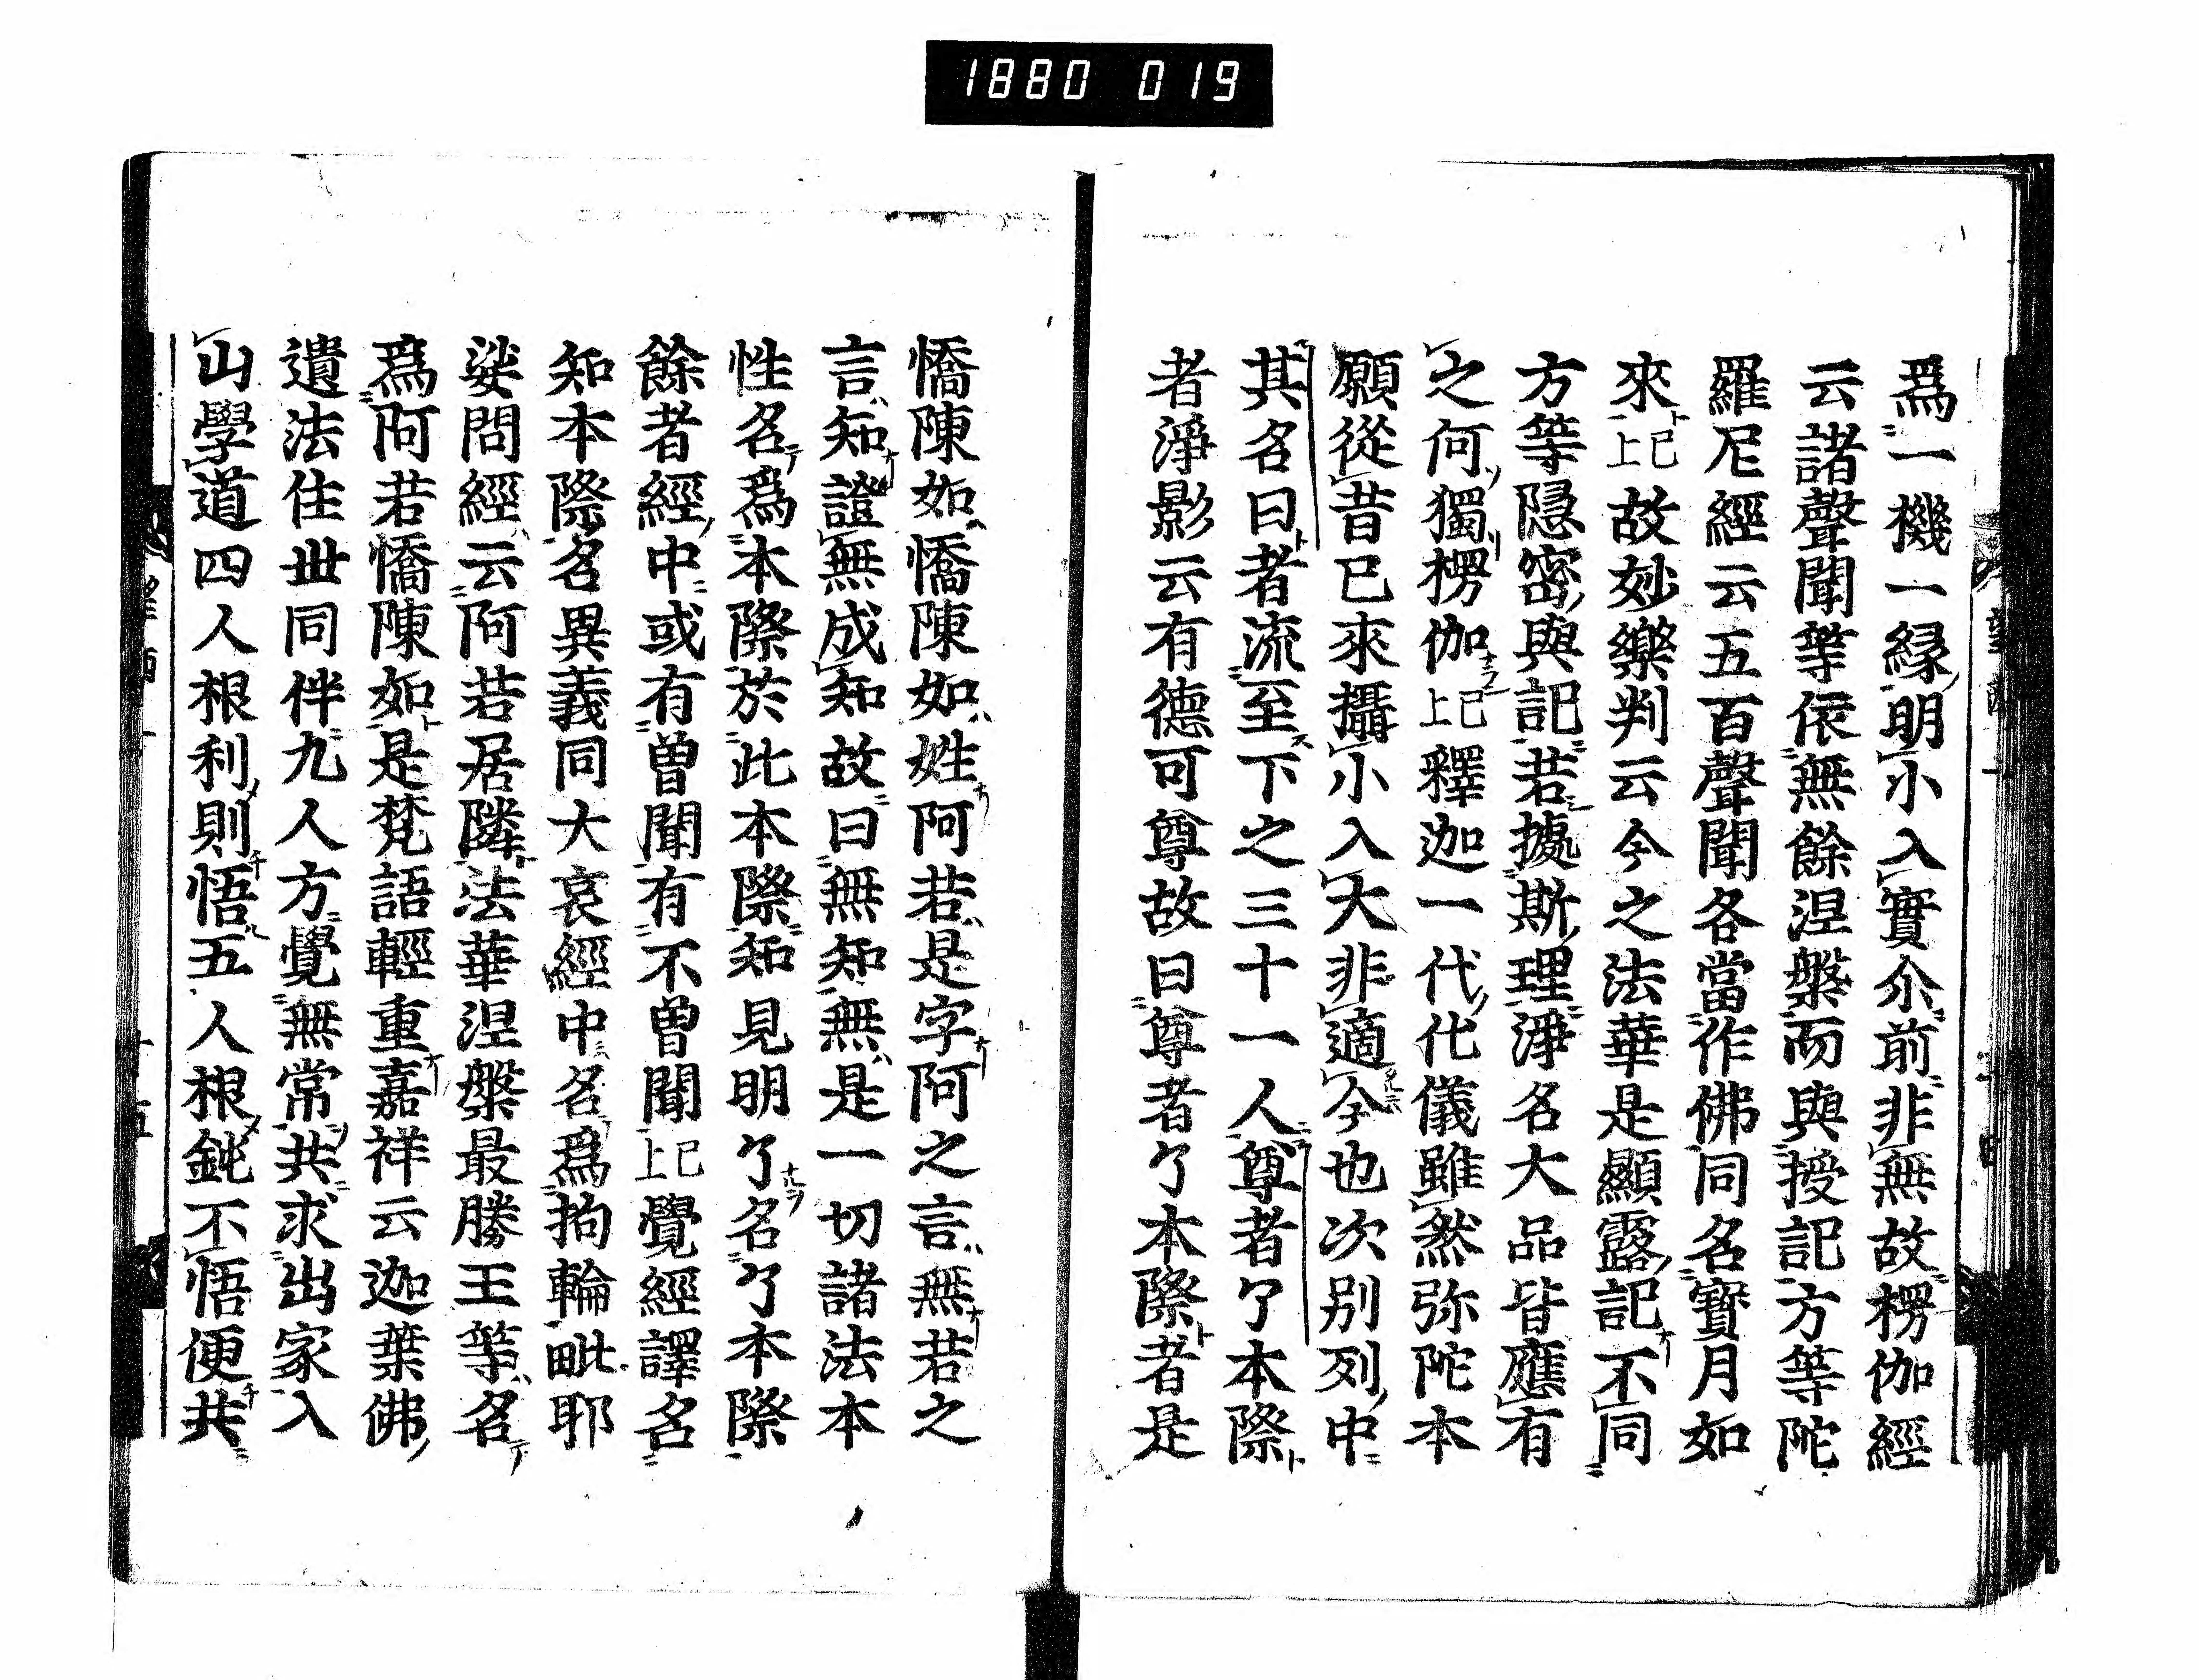 1880 019
爲一機一縁明小入實尒前非無故楞伽經
云諸聲聞等依無餘涅槃而與授記方等陀
羅尼經云五百聲聞各當作佛同名寳月如
來已上故妙樂判云今之法華是顯露記不同
方等隱密與記若據斯理淨名大品皆應有
之何獨楞伽已上釋迦一代化儀雖然弥陀本
願從昔已來攝小入大非適今也次別列中
其名曰者流至下之三十一人尊者了本際
者淨影云有德可尊故曰尊者了本際者是
憍陳如憍陳如姓阿若是字阿之言無若之
言知證無成知故曰無知無是一切諸法本
性名爲本際於此本際知見明了名了本際
餘者經中或有曾聞有不曾聞已上覺經譯名
知本際名異義同大哀經中名爲拘輪毗耶
娑問經云阿若居隣法華涅槃最勝王等名
爲阿若憍陳如是梵語輕重嘉祥云迦葉佛
遺法住丗同伴九人方覺無常共求出家入
山學道四人根利則悟五人根鈍不悟便共